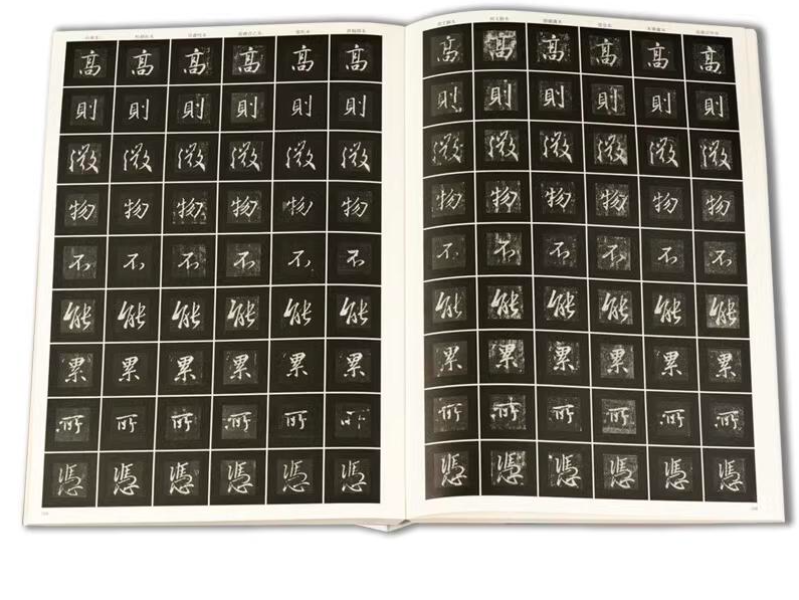 高 高 高 高 高 高 高 高 高 高 高 高
則 則 則 則 則 則 則 則 則 則 則 則
微 微 微 微 微 微 微 微 微 微 微 微
物 物 物 物 物 物 物 物 物 物 物 物
不 不 不 不 不 不 不 不 不 不 不 不
能 能 能 能 能 能 能 能 能 能 能 能
累 累 累 累 累 累 累 累 累 累 累 累
所 所 所 所 所 所 所 所 所 所 所 所
憑 憑 憑 憑 憑 憑 憑 憑 憑 憑 憑 憑